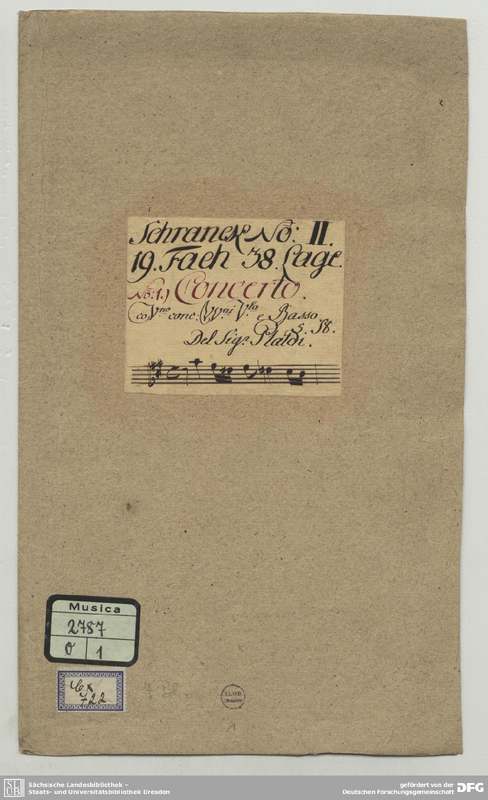 Schranck No: II.
19. Fach 38. Lage.
No: 1.) Concerto.
co Vno conc: VVni Vla e Basso.
5. St.
Del Sigr. Platti.
Musica
2787
O 1
Cx
722
7 Bl.
SLUB
Dresden
1
SLUB
Sächsische Landesbibliothek –
Staats- und Universitätsbibliothek Dresden
gefördert von der
Deutschen Forschungsgemeinschaft DFG